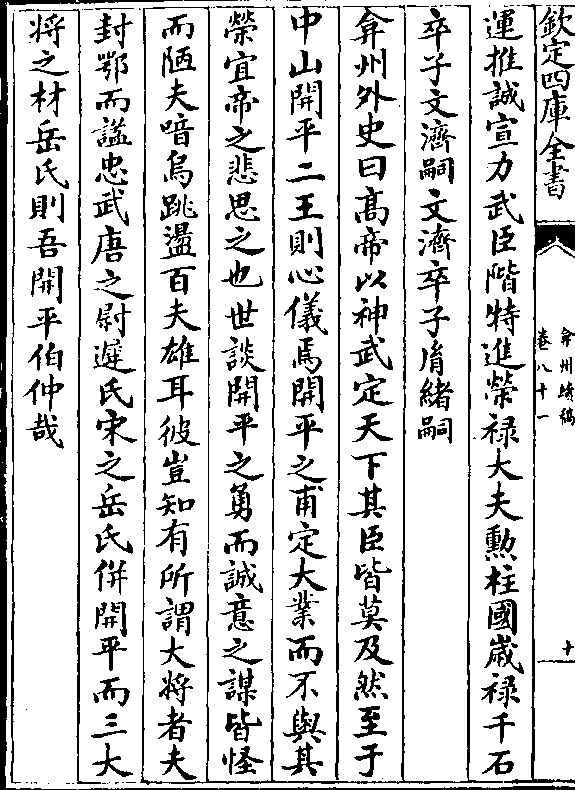 欽定四庫全書
弇州續稿
卷八十一
十
運推誠宣力武臣階特進榮禄大夫勲柱國嵗禄千石
卒子文濟嗣文濟卒子胤緒嗣
弇州外史曰髙帝以神武定天下其臣皆莫及然至于
中山開平二王則心儀焉開平之甫定大業而不與其
榮宜帝之悲思之也世談開平之勇而誠意之謀皆怪
而陋夫喑烏跳盪百夫雄耳彼豈知有所謂大将者夫
封鄂而諡忠武唐之尉遲氏宋之岳氏併開平而三大
将之材岳氏則吾開平伯仲哉